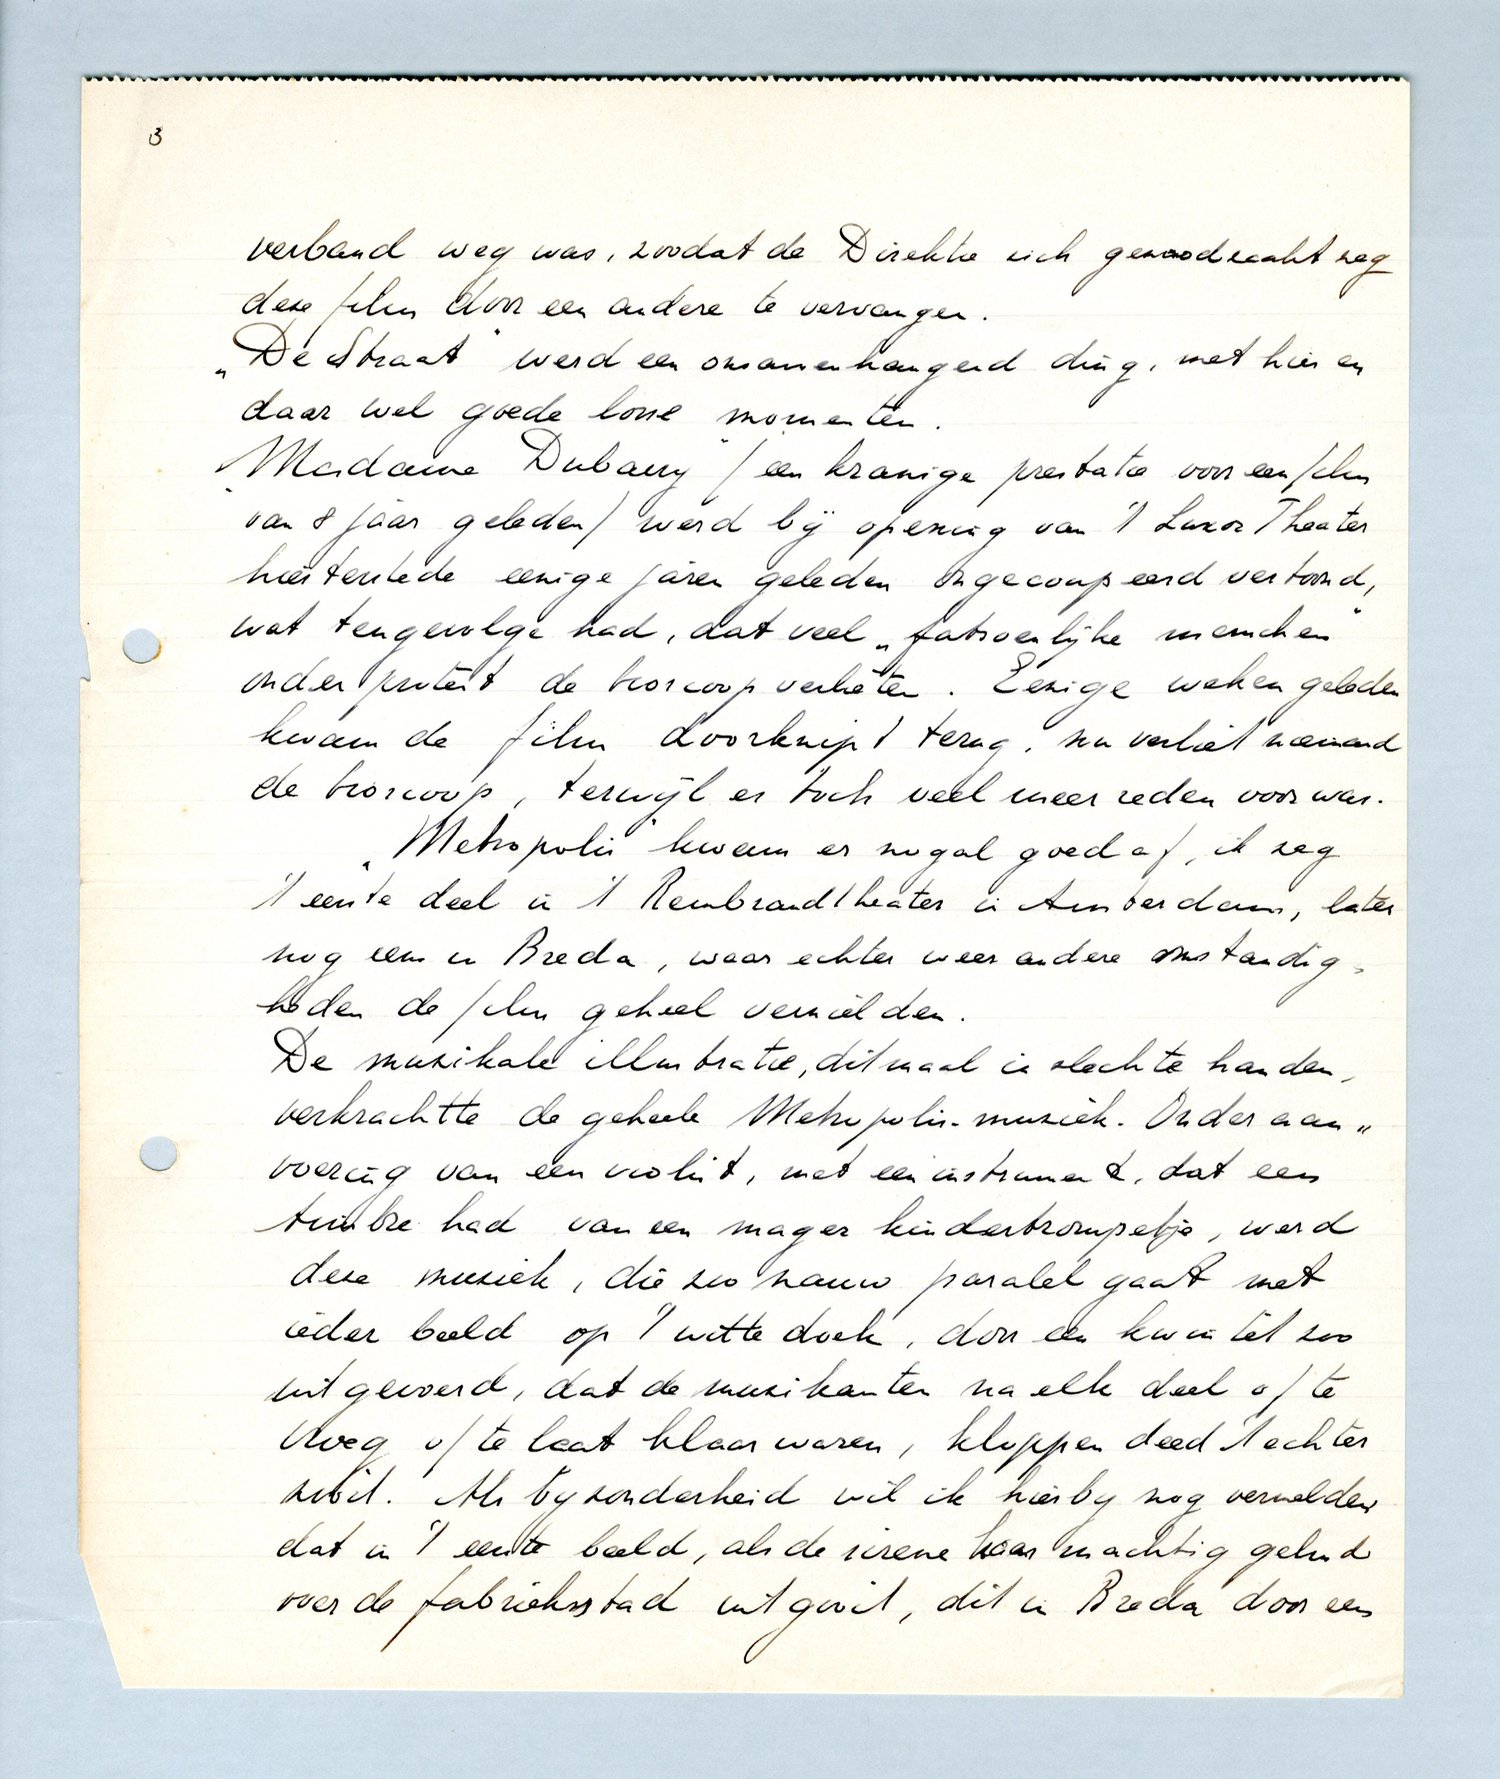 3
verband weg was, zoodat de Direktie zich genoodzaakt zag
deze film door een andere te vervangen.
„De Straat” werd een onsamenhangend ding, met hier en
daar wel goede losse momenten.
„Madame Dubarry” (een kranige prestatie voor een film
van 8 jaar geleden) werd bij opening van 't Luxor Theater
hier ter stede eenige jaren geleden ongecoupeerd vertoond,
wat tengevolge had, dat veel „fatsoenlijke menschen”
onder protest de bioscoop verlieten. Eenige weken geleden
kwam de film doorknipt terug, nu verliet niemand
de bioscoop, terwijl er toch veel meer reden voor was.
„Metropolis” kwam er nogal goed af, ik zag
't eerste deel in 't Rembrandttheater in Amsterdam, later
nog eens in Breda, waar echter weer andere omstandig-
heden de film geheel vernielden.
De muzikale illustratie, ditmaal in slechte handen,
verkrachtte de geheele Metropolis-muziek. Onder aan-
voering van een violist, met een instrument, dat een
timbre had van een mager kindertrompetje, werd
deze muziek, die zoo nauw paralel gaat met
ieder beeld op 't witte doek, door een kwintet zoo
uitgevoerd, dat de muzikanten na elk deel of te
vroeg of te laat klaar waren, kloppen deed 't echter
nooit. Als byzonderheid wil ik hierby nog vermelden
dat in 't eerste beeld, als de sirene haar machtig geluid
over de fabrieksstad uitgooit, dit in Breda door een